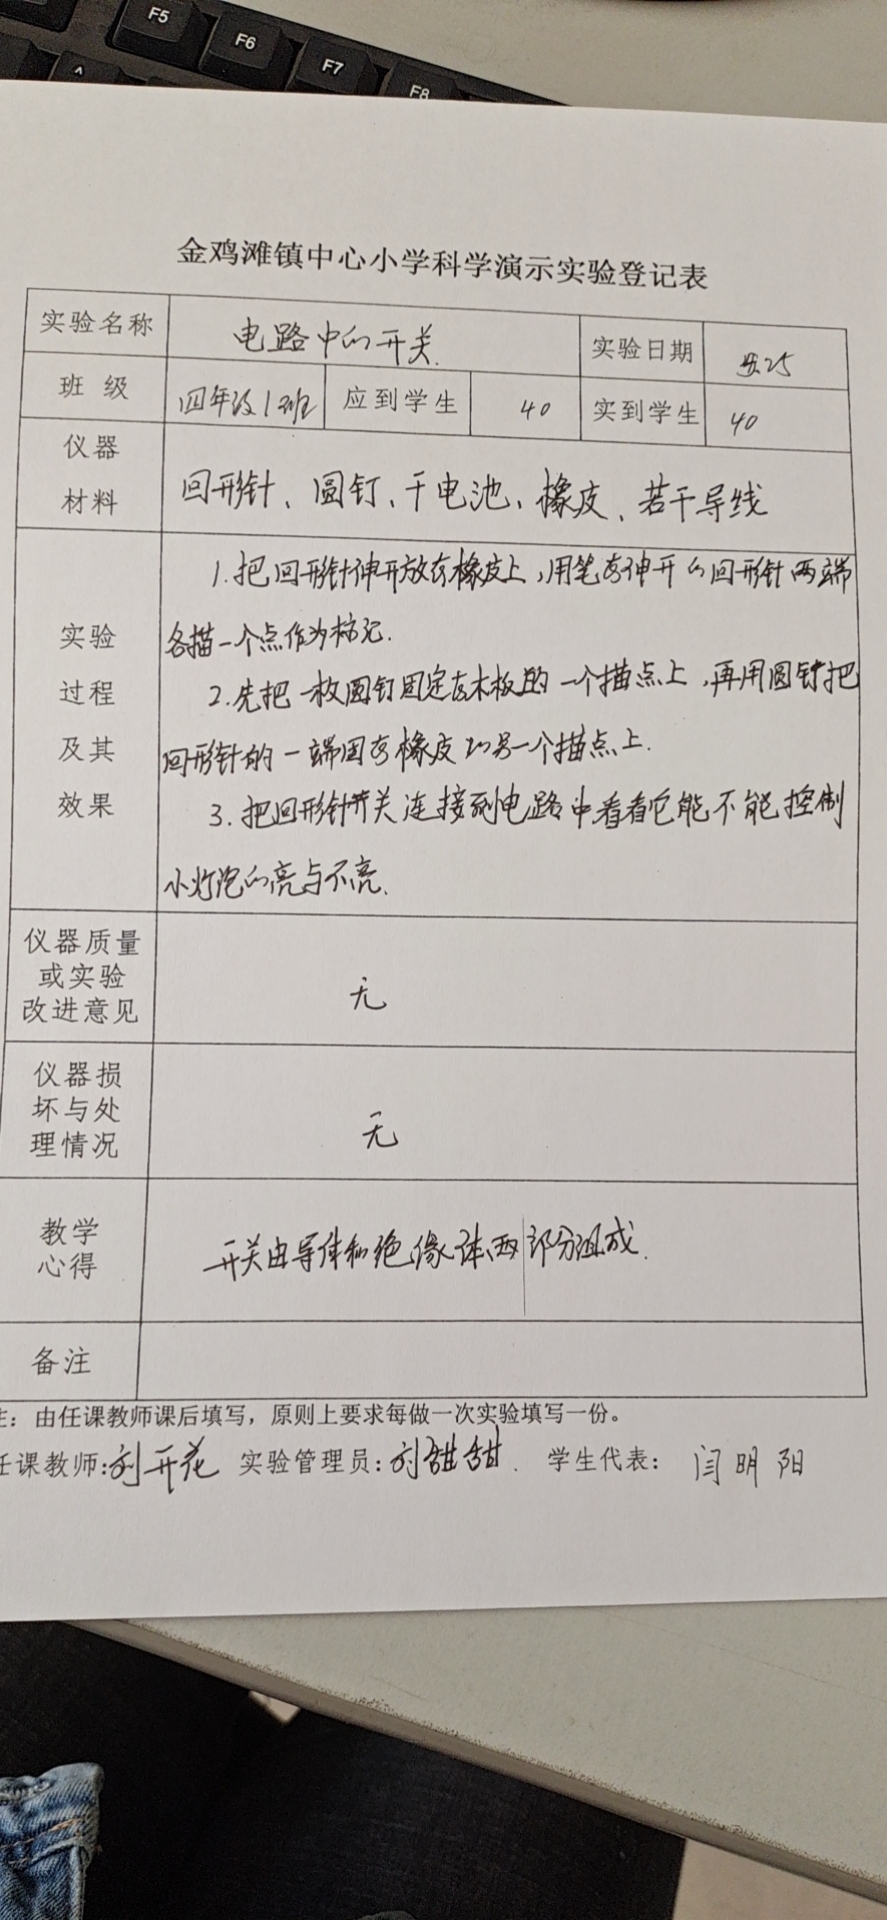 F5
F6
F7
F8
金鸡滩镇中心小学科学演示实验登记表
实验名称 电路中的开关. 实验日期 5.25
班 级 四年级1班 应到学生 40 实到学生 40
仪器
材料
回形针、圆钉、干电池、橡皮、若干导线
实验
过程
及其
效果
1.把回形针伸开放在橡皮上,用笔在伸开的回形针两端
各描一个点作为标记.
2.先把一枚圆钉固定在木板的一个描点上,再用圆钉把
回形针的一端固在橡皮的另一个描点上.
3.把回形针开关连接到电路中看看它能不能控制
小灯泡的亮与不亮.
仪器质量
或实验
改进意见
无
仪器损
坏与处
理情况
无
教学
心得
开关由导体和绝缘体两部分组成.
备注
注：由任课教师课后填写，原则上要求每做一次实验填写一份。
任课教师:刘开花 实验管理员:刘甜甜. 学生代表: 闫明阳